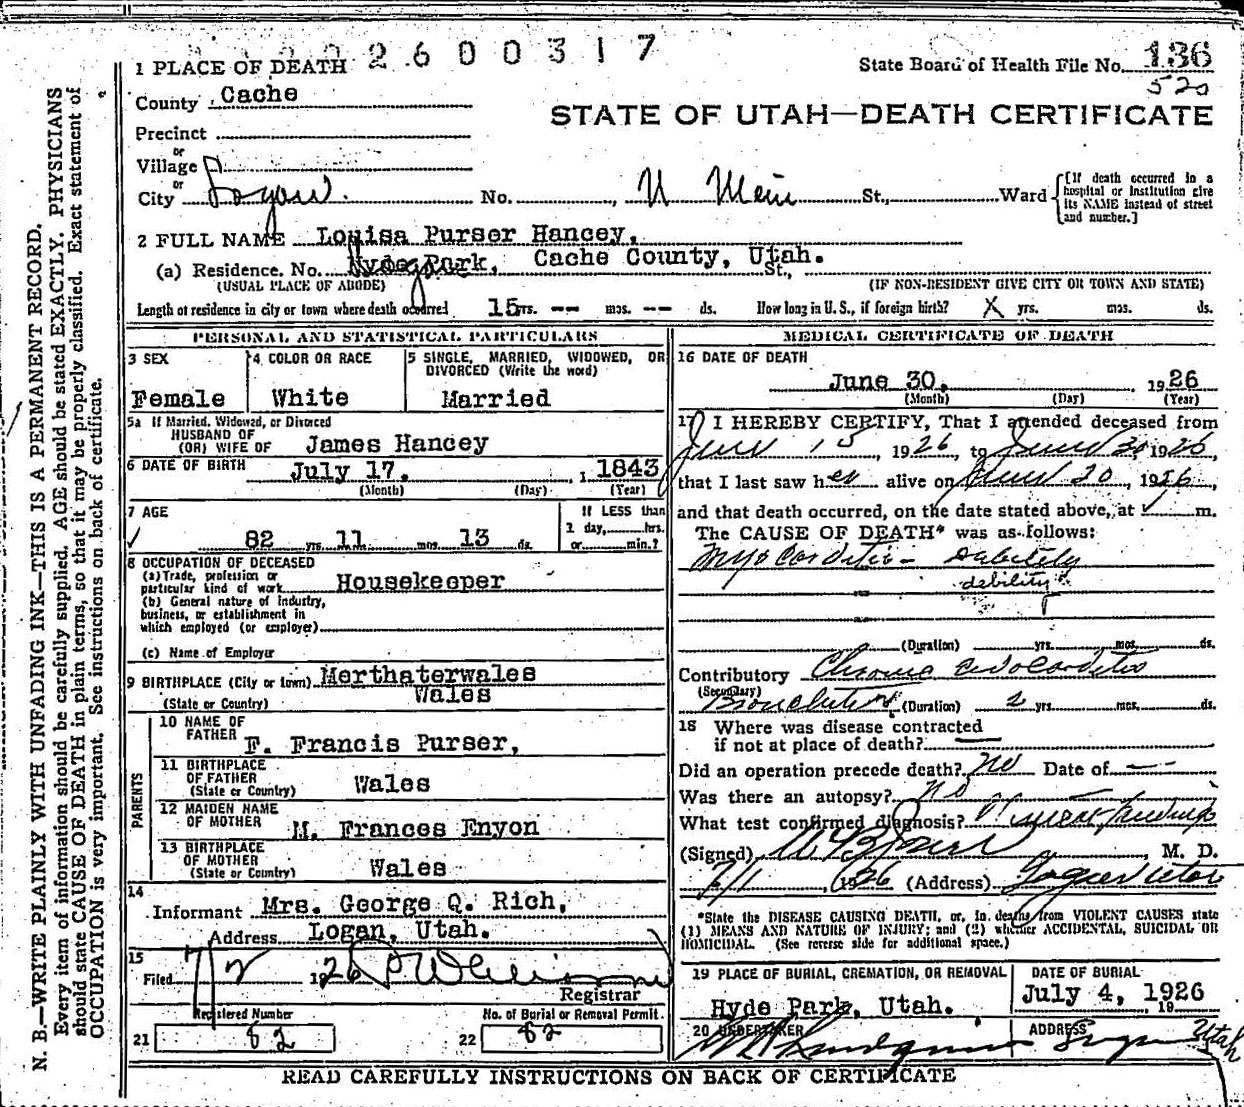 2600317
1 PLACE OF DEATH
State Board of Health File No. 136
520
County Cache
STATE OF UTAH—DEATH CERTIFICATE
Precinct
or
Village
or
City Logan. No. , N Main St., Ward
[If death occurred in a hospital or institution give its NAME instead of street and number.]
2 FULL NAME Louisa Purser Hancey,
(a) Residence. No. Hyde Park, Cache County, Utah. St.,
(USUAL PLACE OF ABODE) (IF NON-RESIDENT GIVE CITY OR TOWN AND STATE)
Length of residence in city or town where death occurred 15 yrs. -- mos. -- ds. How long in U. S., if foreign birth? X yrs. mos. ds.
PERSONAL AND STATISTICAL PARTICULARS
3 SEX
Female
4 COLOR OR RACE
White
5 SINGLE, MARRIED, WIDOWED, OR
DIVORCED (Write the word)
Married
5a If Married, Widowed, or Divorced
HUSBAND OF
(OR) WIFE OF James Hancey
6 DATE OF BIRTH July 17. , 1843
(Month) (Day) (Year)
7 AGE
✓ 82 yrs. 11 mos. 13 ds.
If LESS than
1 day, hrs.
or min.?
8 OCCUPATION OF DECEASED
(a) Trade, profession or
particular kind of work Housekeeper
(b) General nature of industry,
business, or establishment in
which employed (or employer)
(c) Name of Employer
9 BIRTHPLACE (City or town) Merthaterwales
(State or Country) Wales
PARENTS
10 NAME OF
FATHER F. Francis Purser,
11 BIRTHPLACE
OF FATHER
(State or Country) Wales
12 MAIDEN NAME
OF MOTHER M. Frances Enyon
13 BIRTHPLACE
OF MOTHER
(State or Country) Wales
14
Informant Mrs. George Q. Rich,
Address Logan, Utah.
15
Filed 7/2 1926
Registrar
Registered Number
21 82
No. of Burial or Removal Permit.
22 82
MEDICAL CERTIFICATE OF DEATH
16 DATE OF DEATH
June 30, 1926
(Month) (Day) (Year)
17 I HEREBY CERTIFY, That I attended deceased from
June 15, 1926, to June 30 1926,
that I last saw her alive on June 30, 1926,
and that death occurred, on the date stated above, at ✓ m.
The CAUSE OF DEATH* was as follows:
Myocarditis - debility
debility
(Duration) yrs. mos. ds.
Contributory Chronic endocarditis
(Secondary) Bronchitis (Duration) 2 yrs. mos. ds.
18 Where was disease contracted
if not at place of death? —
Did an operation precede death? No Date of —
Was there an autopsy? no
What test confirmed diagnosis? Physical findings
(Signed) , M. D.
7/1, 1926 (Address) Logan Utah
*State the DISEASE CAUSING DEATH, or, in deaths from VIOLENT CAUSES state
(1) MEANS AND NATURE OF INJURY; and (2) whether ACCIDENTAL, SUICIDAL OR
HOMICIDAL. (See reverse side for additional space.)
19 PLACE OF BURIAL, CREMATION, OR REMOVAL
Hyde Park, Utah.
DATE OF BURIAL
July 4, 1926
19
20 UNDERTAKER
ADDRESS
Logan Utah
READ CAREFULLY INSTRUCTIONS ON BACK OF CERTIFICATE
N. B.—WRITE PLAINLY WITH UNFADING INK—THIS IS A PERMANENT RECORD.
Every item of information should be carefully supplied. AGE should be stated EXACTLY. PHYSICIANS
should state CAUSE OF DEATH in plain terms, so that it may be properly classified. Exact statement of
OCCUPATION is very important. See instructions on back of certificate.